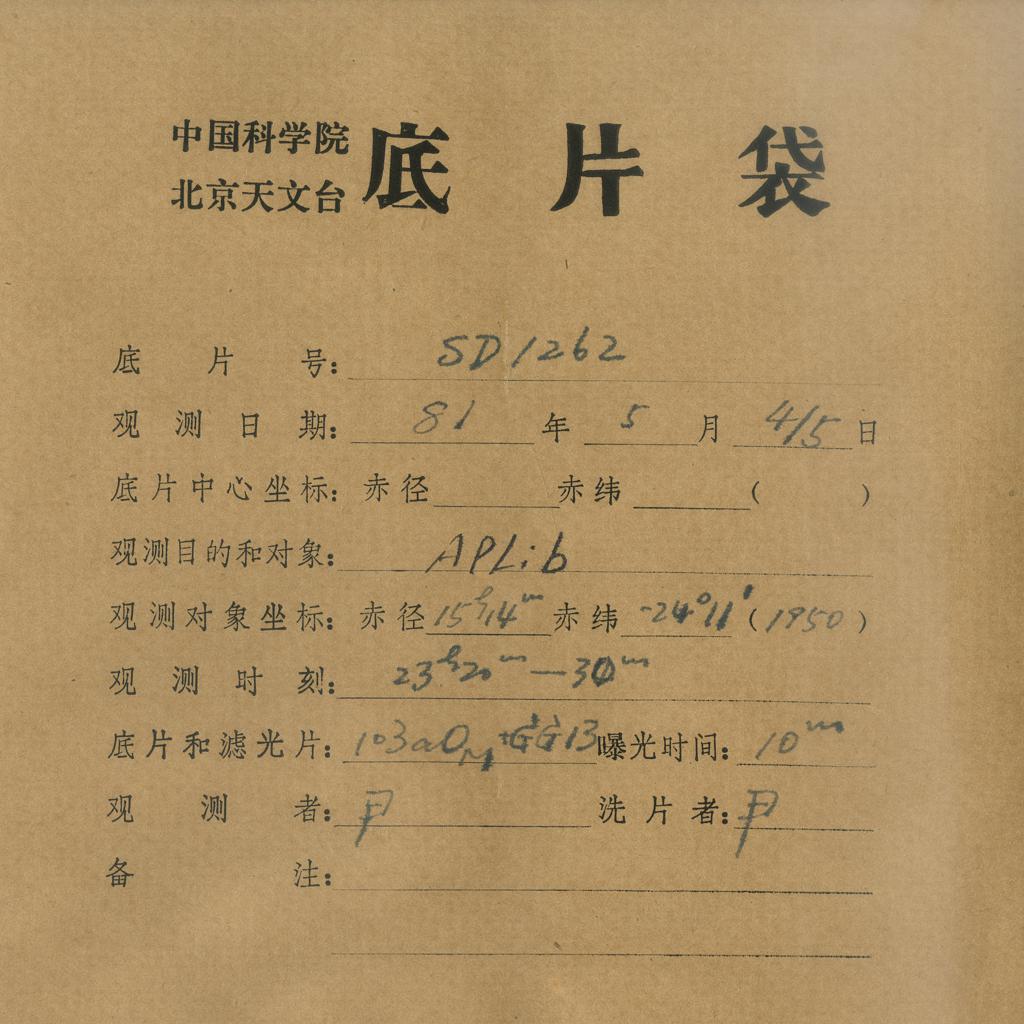 中国科学院
北京天文台
底片袋
底片号: SD1262
观测日期: 81年5月4/5日
底片中心坐标: 赤径 赤纬 ( )
观测目的和对象: APLib
观测对象坐标: 赤径 15h14m 赤纬 -24°11′ (1950)
观测时刻: 23h20m—30m
底片和滤光片: 103aO +GG13 曝光时间: 10m
观测者:
洗片者:
备注: